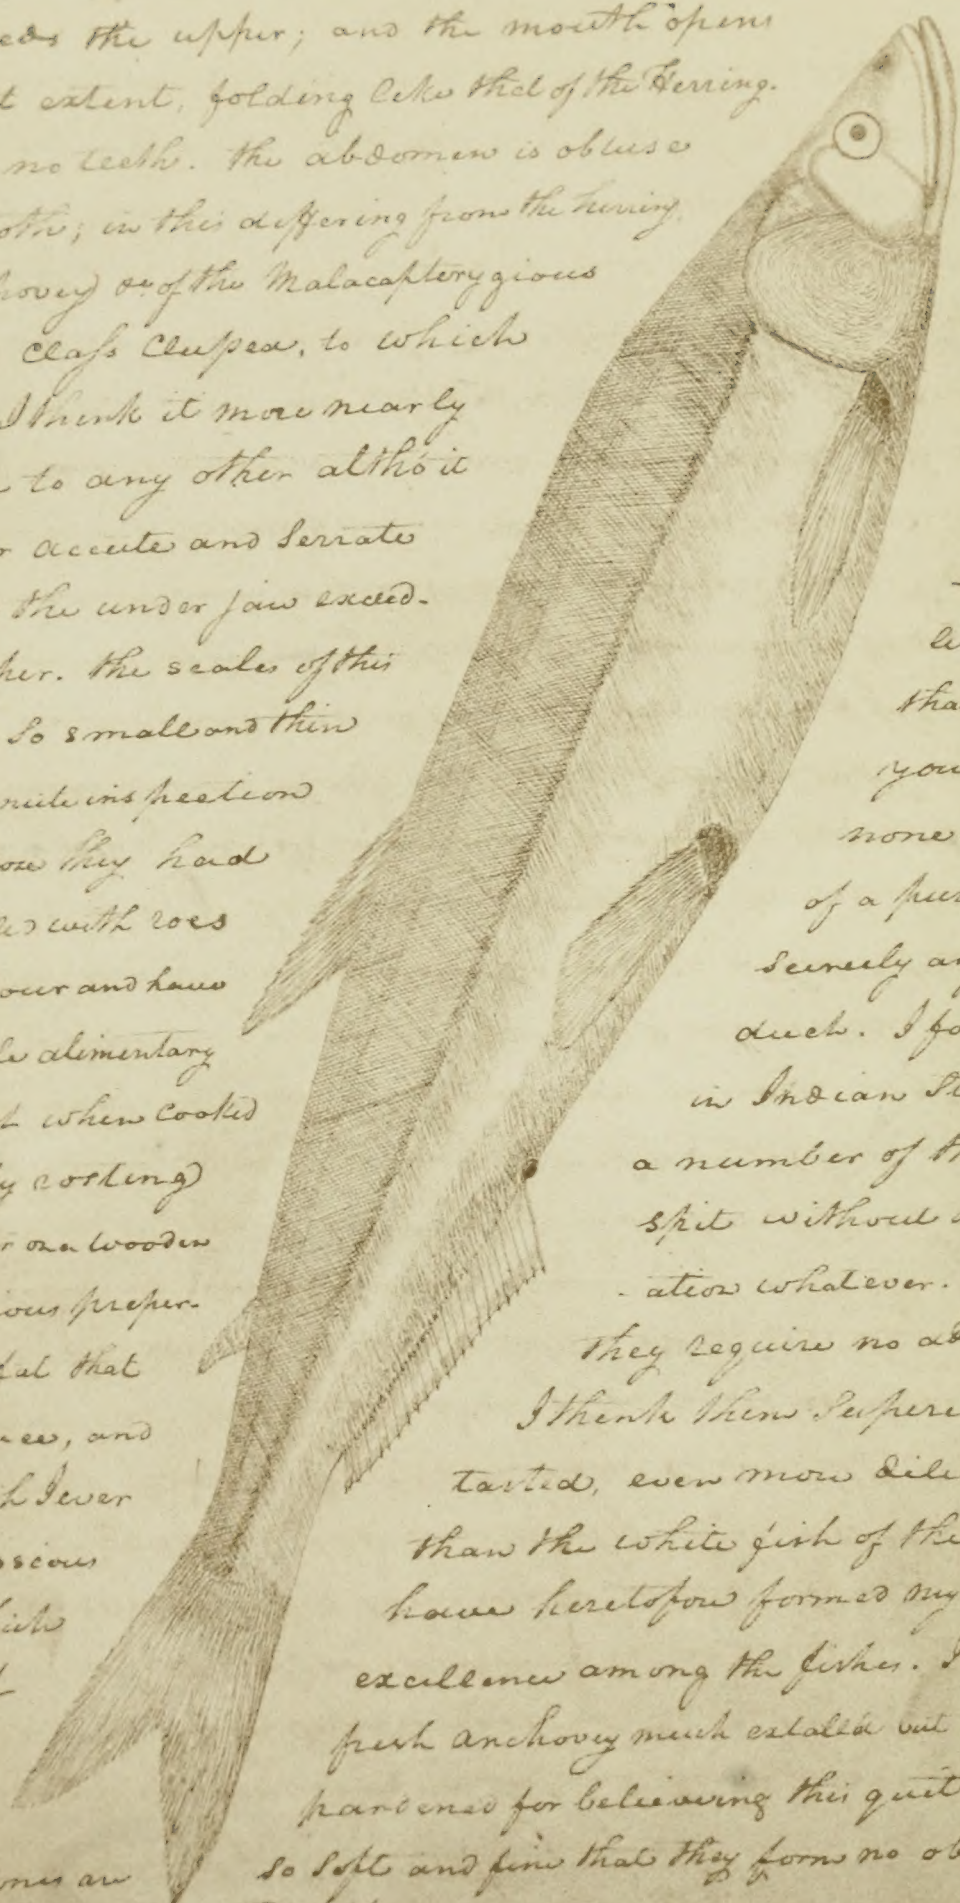 eds the upper; and the mouth opens
t extent, folding like that of the Herring.
no teeth. the abdomen is obtuse
oth; in this differing from the herring
hovey) or of the Malacapterygious
Class Clupea, to which
I think it more nearly
to any other altho' it
accute and Serrate
the under jaw exceed-
per. the scales of this
So small and thin
nute inspection
ose they had
led with roes
our and have
le alimentary
t when cooked
y roasting)
r on a wooden
ious preper-
fat that
ee, and
h I ever
scious
ich
ones are
le
tha
you
none
of a pur
scercely an
duch. I fo
in Indian St
a number of th
spit without a
ation whatever.
they require no ad
I think them Supere
tasted, even more dili
than the white fish of the
have heretofore formed my
excellence among the fishes. I
fresh anchovey much extall'd but
pardened for believing this quit
so Soft and fine that they form no ob